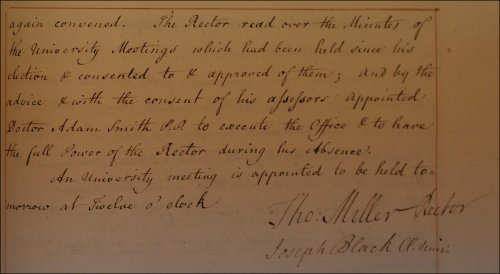 again convened. The Rector read over the Minutes of
the University Meetings which had been held since his
election & consented to & approved of them; and by the
advice & with the consent of his assessors appointed
Doctor Adam Smith P.P. to execute the Office & to have
the full Power of the Rector during his Absence.
An University meeting is appointed to be held to-
morrow at Twelve o' clock
Tho: Miller Rector
Joseph Black Cl. Univ: